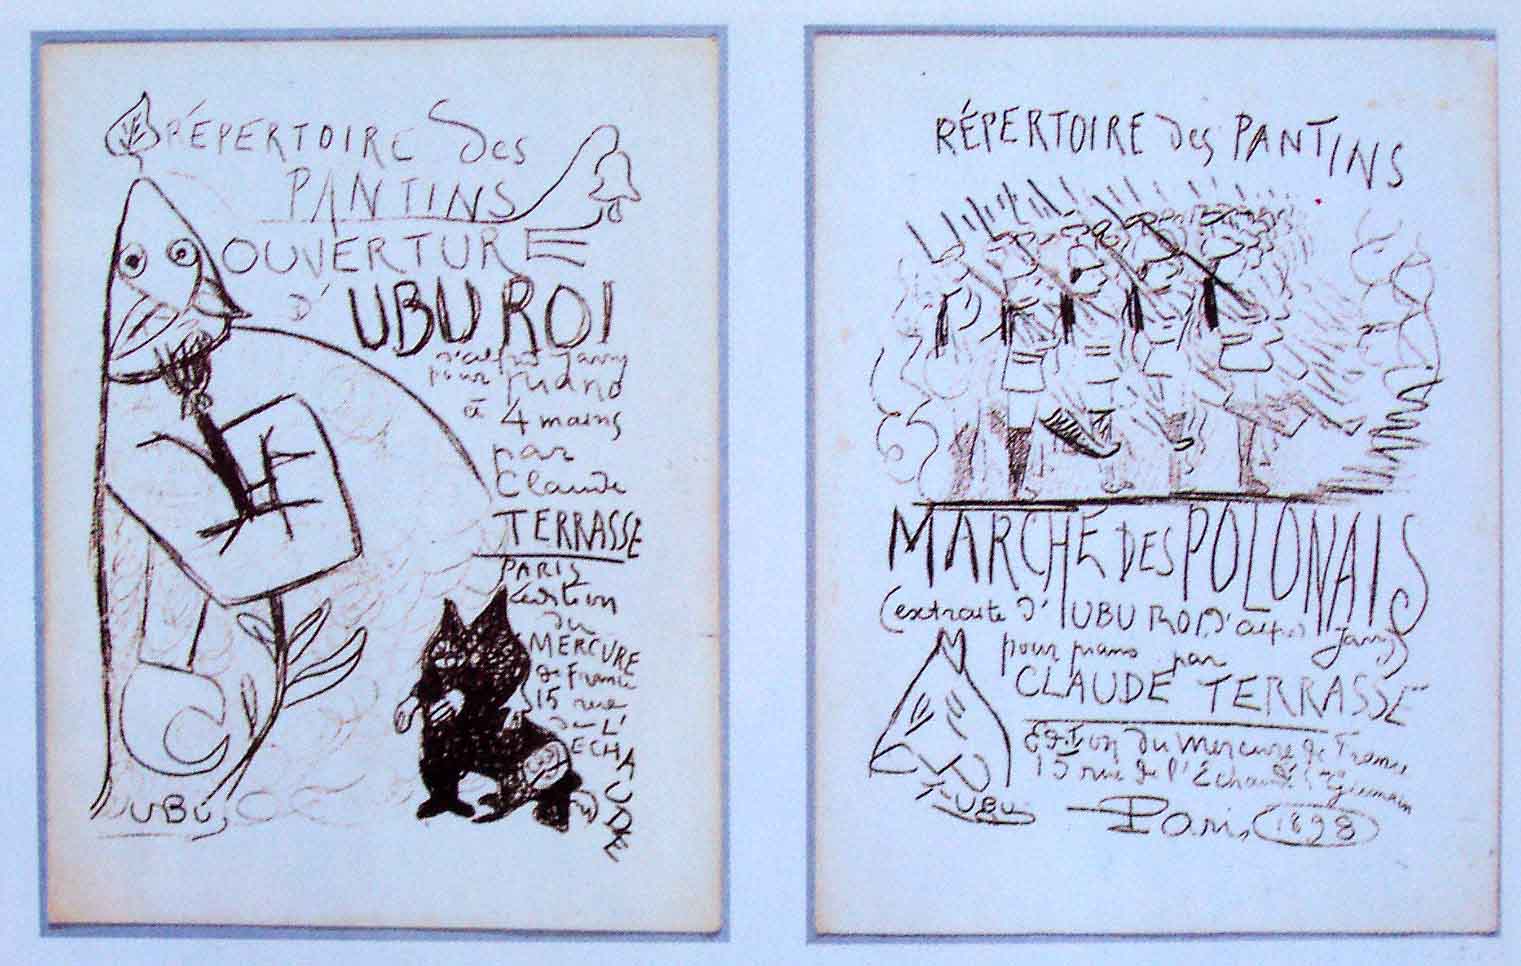 RÉPERTOIRE des
PANTINS
OUVERTURE
D'UBU ROI
d'alfred Jarry
pour piano
à 4 mains
par
Claude
TERRASSE
PARIS
édition
du
MERCURE
de France
15 rue
de L'
ECHAUDE
UBU
RÉPERTOIRE des PANTINS
MARCHE DES POLONAIS
(extraite d'UBU ROI d'alfred Jarry)
pour piano par
CLAUDE TERRASSE
Edition du Mercure de France
15 rue de l'Échaudé
UBU
Paris, 1898